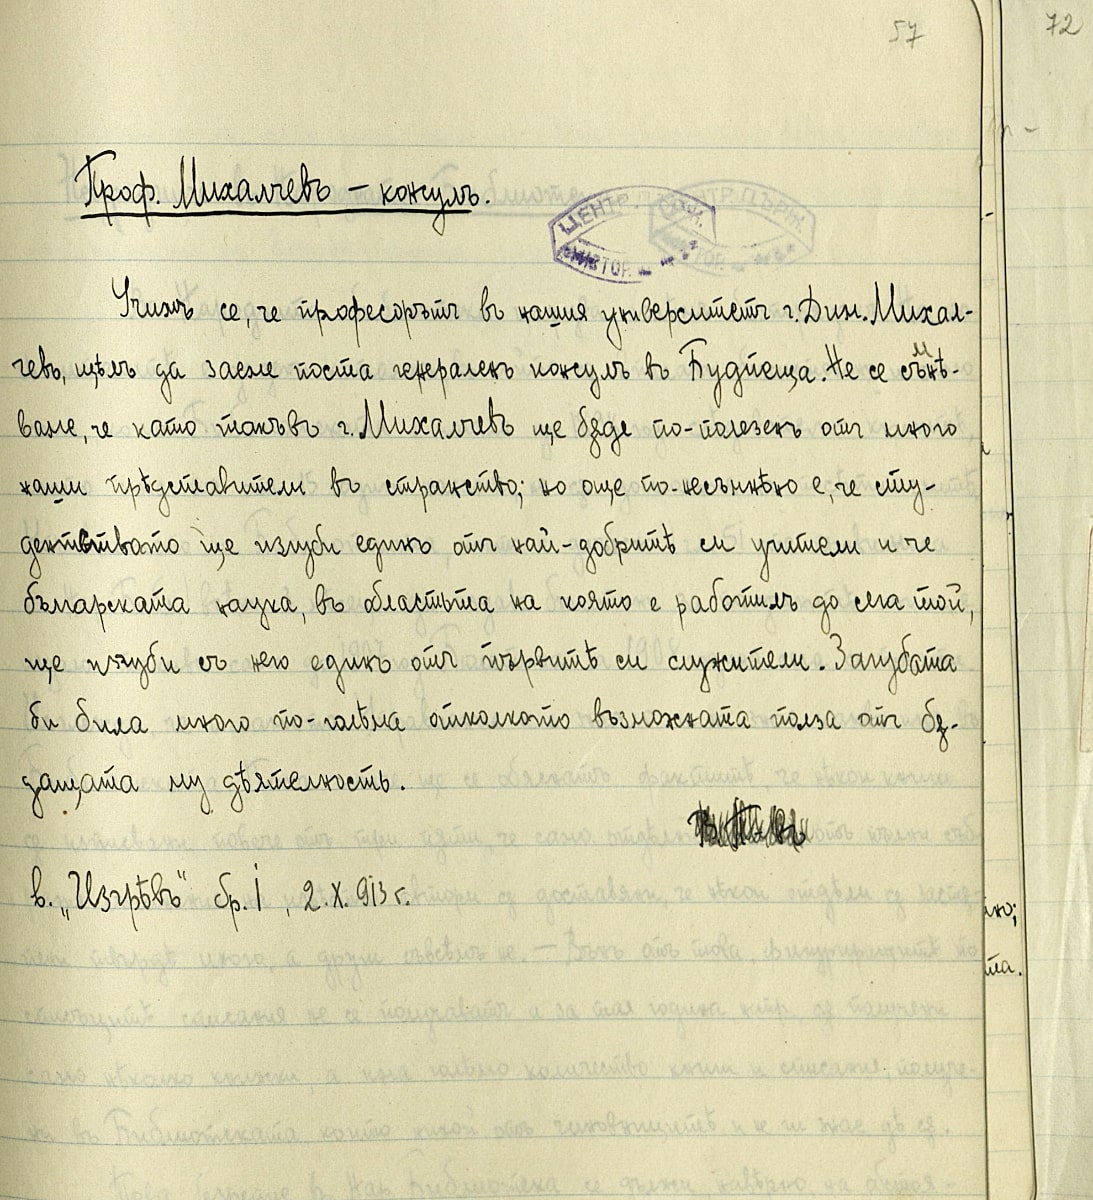 57
72
Проф. Михалчевъ – консулъ.
ЦЕНТР. ДЪРЖ.
ИСТОР.
Учимъ се, че професорътъ въ нашия университетъ г. Дим. Михал-
чевъ, щѣлъ да заеме поста генераленъ консулъ въ Будпеща. Не се съмнѣ-
ваме, че като такъвъ г. Михалчевъ ще бѫде по-полезенъ отъ много
наши прѣдставители въ странство; но още по-несъмнѣно е, че сту-
дентството ще изгуби единъ отъ най-добритѣ си учители и че
българската наука, въ областьта на която е работилъ до сега той,
ще изгуби съ него единъ отъ първитѣ си служители. Загубата
би била много по-голѣма отколкото възможната полза отъ бѫ-
дащата му дѣятелность.
в. „Изгрѣвъ" бр. 1, 2. X. 913 г.